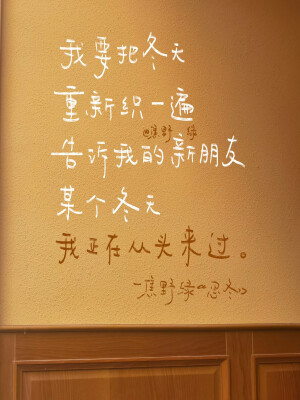 我要把冬天
重新织一遍
@焦野绿
告诉我的新朋友
某个冬天
我正在从头来过。
-焦野绿《忍冬》